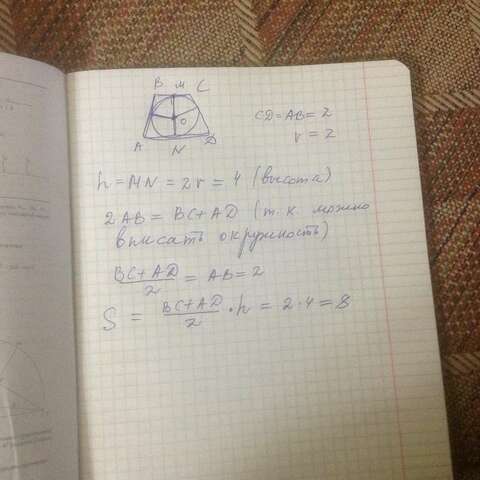 B M C
O
A N D
CD = AB = 2
r = 2
h = MN = 2r = 4 (высота)
2AB = BC + AD (т.к. можно
вписать окружность)
BC + AD / 2 = AB = 2
S = BC + AD / 2 · h = 2 · 4 = 8